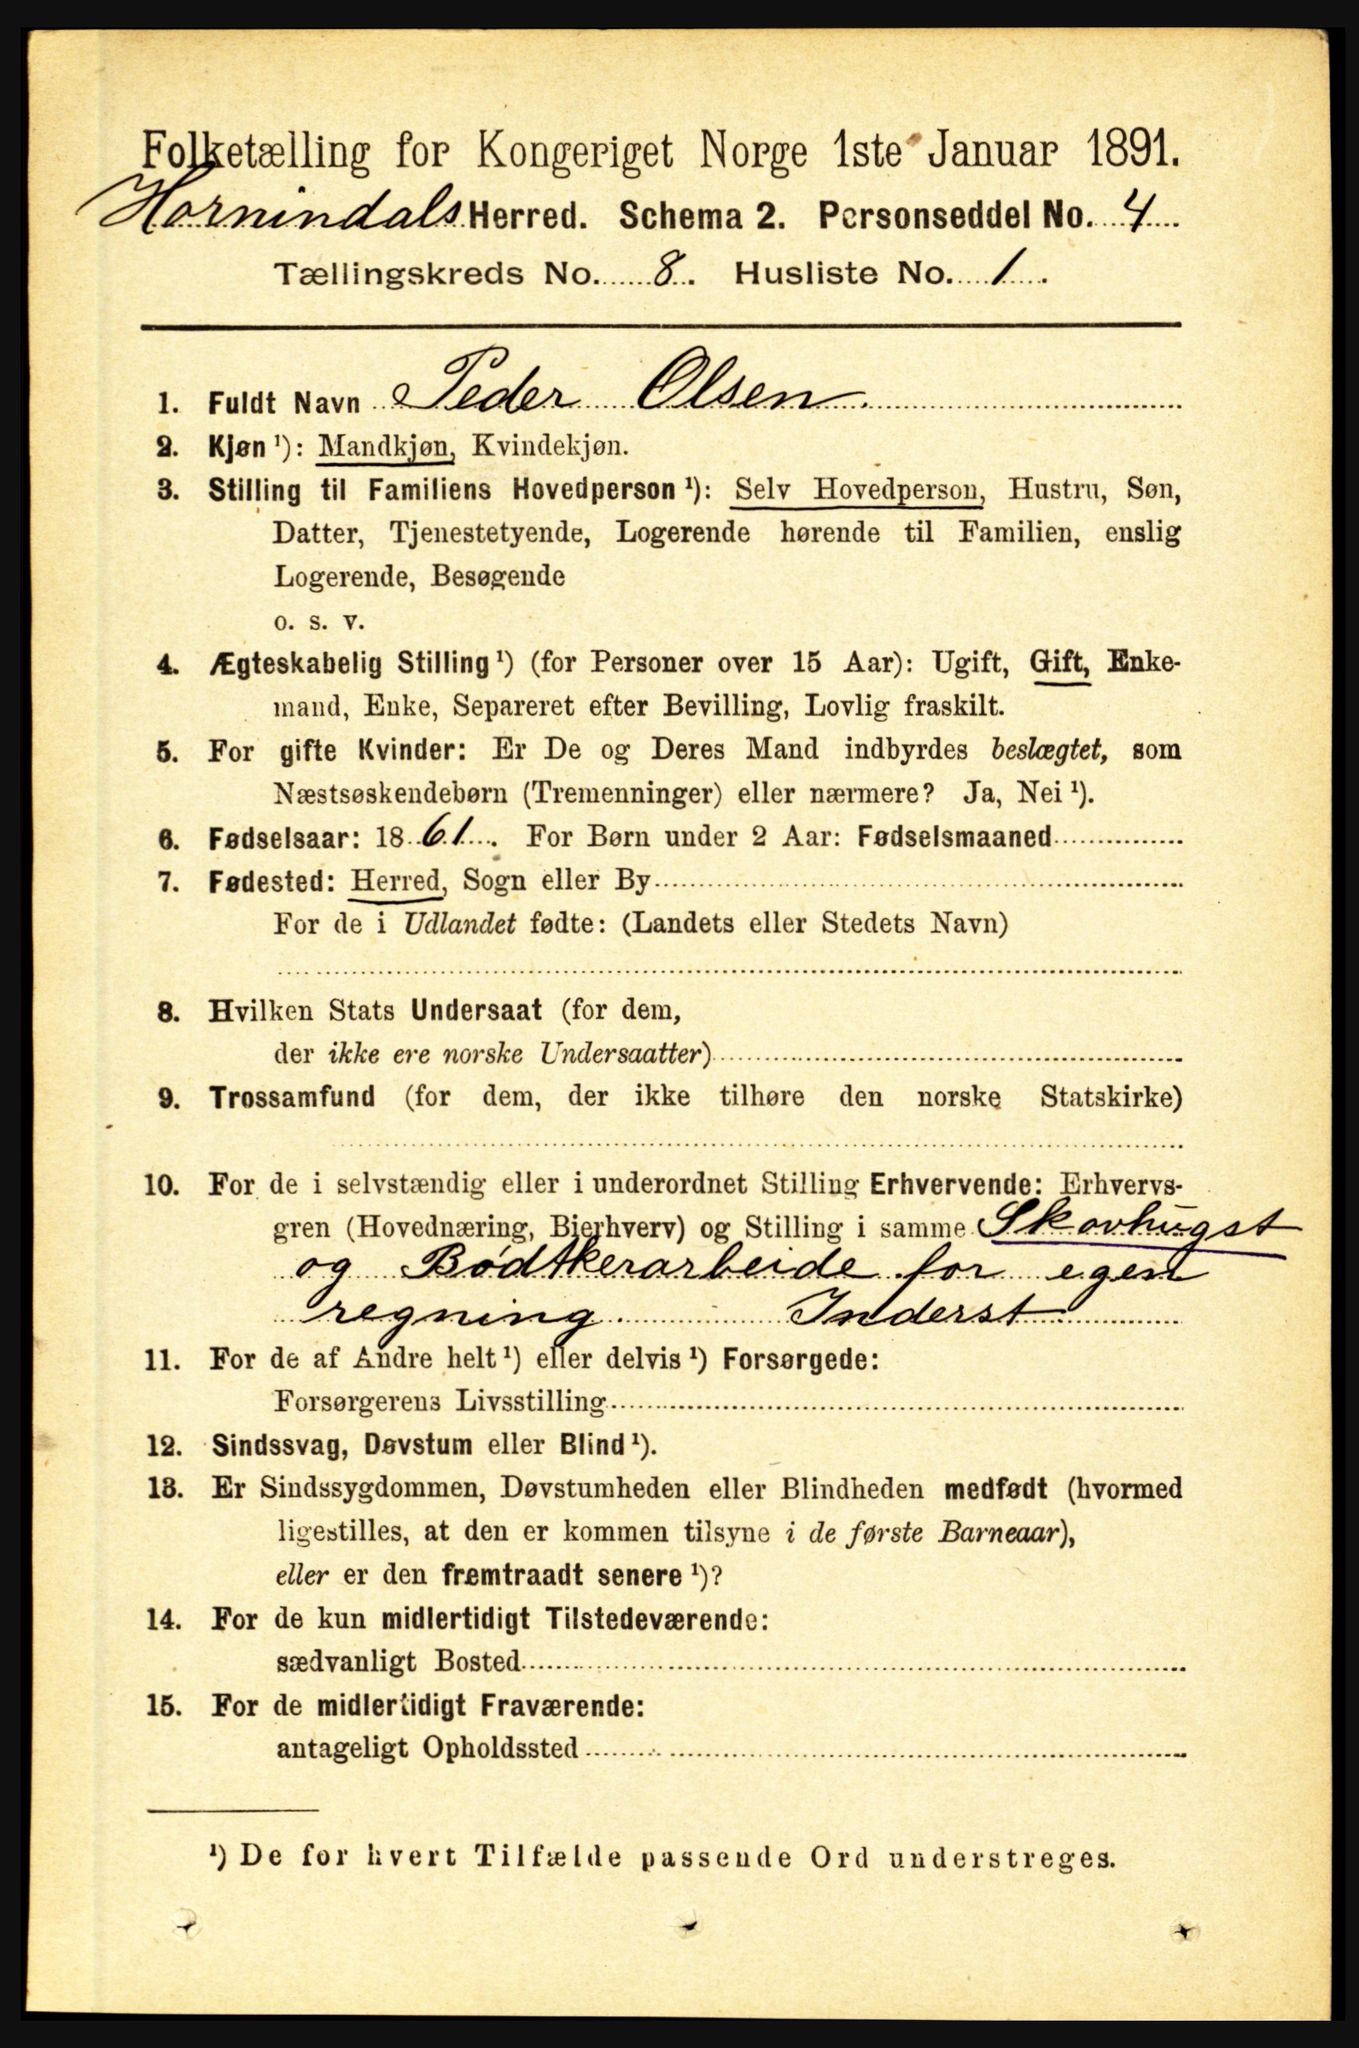 Folketælling for Kongeriget Norge 1ste Januar 1891.
Hornindals Herred. Schema 2. Personseddel No. 4
Tællingskreds No. 8. Husliste No. 1.
1. Fuldt Navn Peder Olsen.
2. Kjøn ¹): Mandkjøn, Kvindekjøn.
3. Stilling til Familiens Hovedperson ¹): Selv Hovedperson, Hustru, Søn,
Datter, Tjenestetyende, Logerende hørende til Familien, enslig
Logerende, Besøgende
o. s. v.
4. Ægteskabelig Stilling ¹) (for Personer over 15 Aar): Ugift, Gift, Enke-
mand, Enke, Separeret efter Bevilling, Lovlig fraskilt.
5. For gifte Kvinder: Er De og Deres Mand indbyrdes beslægtet, som
Næstsøskendebørn (Tremenninger) eller nærmere? Ja, Nei ¹).
6. Fødselsaar: 1861. For Børn under 2 Aar: Fødselsmaaned
7. Fødested: Herred, Sogn eller By
For de i Udlandet fødte: (Landets eller Stedets Navn)
8. Hvilken Stats Undersaat (for dem,
der ikke ere norske Undersaatter)
9. Trossamfund (for dem, der ikke tilhøre den norske Statskirke)
10. For de i selvstændig eller i underordnet Stilling Erhvervende: Erhvervs-
gren (Hovednæring, Bierhverv) og Stilling i samme Skovhugst
og Bødtkerarbeide for egen
regning. Inderst.
11. For de af Andre helt ¹) eller delvis ¹) Forsørgede:
Forsørgerens Livsstilling
12. Sindssvag, Døvstum eller Blind ¹).
13. Er Sindssygdommen, Døvstumheden eller Blindheden medfødt (hvormed
ligestilles, at den er kommen tilsyne i de første Barneaar),
eller er den fremtraadt senere ¹)?
14. For de kun midlertidigt Tilstedeværende:
sædvanligt Bosted
15. For de midlertidigt Fraværende:
antageligt Opholdssted
¹) De for hvert Tilfælde passende Ord understreges.